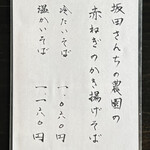 坂田さんちの農園の
赤ねぎのかき揚げそば
冷たいそば 一、〇八〇円
温かいそば 一、一八〇円